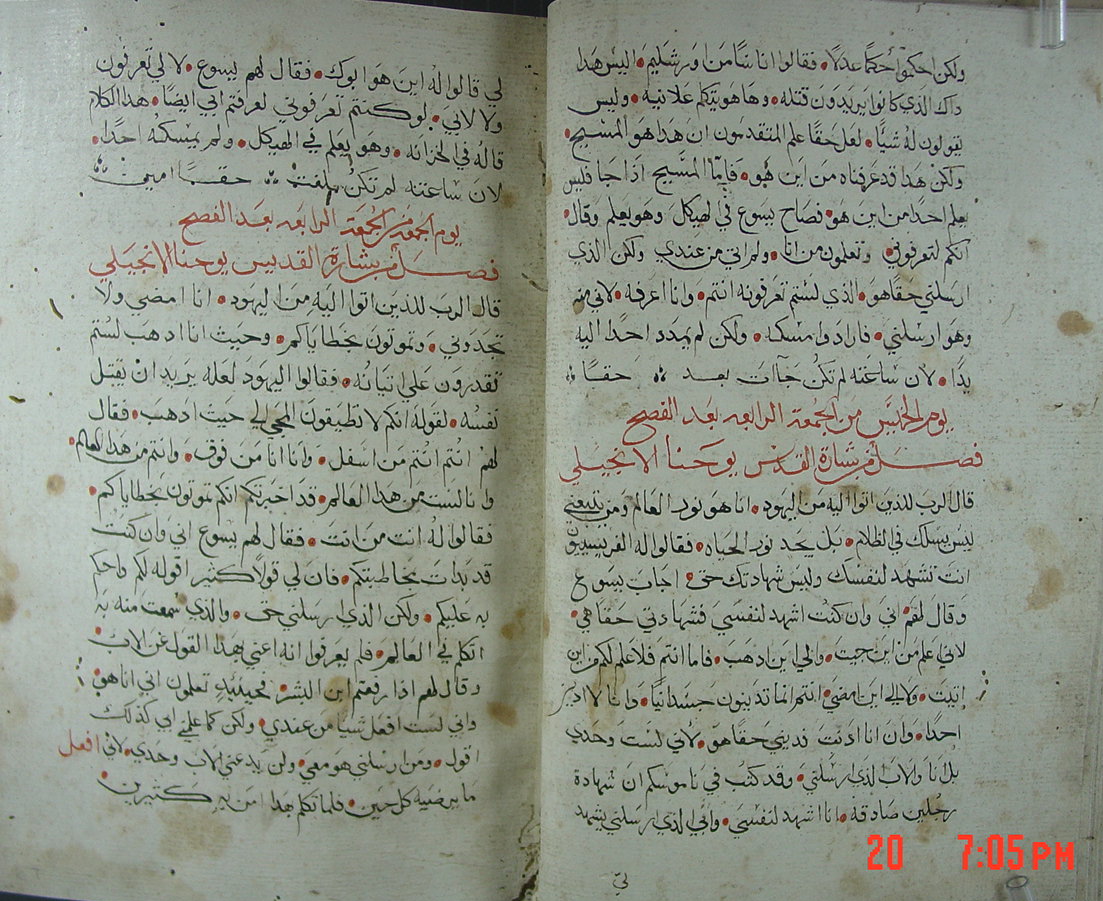 ولكن احكموا حكمًا عدلًا • فقالوا اناسًا من اورشليم • اليس هدا
داك الذي كانوا يريدون قتله • وها هو يتكلم علانيه • وليس
يقولون له شيًا • لعل حقًا علم المتقدمون ان هدا هو المسيح •
ولكن هدا قد عرفناه من اين هو • فاما المسيح اذا جا فليس
يعلم احدًا من اين هو • فصاح يسوع في الهيكل وهو يعلم وقال •
انكم لتعرفوني • وتعلمون من انا • ولم اتي من عندي ولكن الذي
ارسلني حقًا هو • الذي لستم تعرفونه انتم • وانا اعرفه • لاني منه
وهو ارسلني • فارادوا مسكه • ولكن لم يمدد احدًا اليه
يدًا • لان ساعته لم تكن جآات بعد ❖ حقًا ❖
يوم الخميس من الجمعة الرابعه بعد الفصح
فصل من بشارة القديس يوحنا الانجيلي
قال الرب للدين اتوا اليه من اليهود • انا هو نور العالم ومن يتبعني
ليس يسلك في الظلام • بل يجد نور الحياه • فقالوا له الفريسيون
انت تشهد لنفسك وليس شهادتك حق • اجاب يسوع
وقال لهم اني وان كنت اشهد لنفسي فشهادتي حقًا هي •
لاني اعلم من اين جيت • والي اين ادهب • فاما انتم فلا علم لكم من اين
اتيت • ولا الي اين امضي • انتم انما تدينون جسدانيًا • وانا لا ادين
احدًا • وان انا ادنت فديني حقًا هو • لاني لست وحدي
بل انا والاب الذي ارسلني • وقد كتب في ناموسكم ان شهادة
رجلين صادقه • انا اشهد لنفسي • وابي الذي ارسلني يشهد
لي
لي قالوا له اين هو ابوك • فقال لهم يسوع • لا لي تعرفون
ولا لابي • لو كنتم تعرفوني لعرفتم ابي ايضًا • هدا الكلام
قاله في الخزانه • وهو يعلم في الهيكل • ولم يمسكه احدًا •
لان ساعته لم تكن بلغت ❖ حقًا امين ❖
يوم الجمعة من الجمعة الرابعه بعد الفصح
فصل من بشارة القديس يوحنا الانجيلي
قال الرب للذين اتوا اليه من اليهود • انا امضي ولا
تجدوني • وتموتون بخطاياكم • وحيث انا ادهب لستم
تقدرون علي اتيانه • فقالوا اليهود لعله يريد ان يقتل
نفسه • لقوله انكم لا تطيقون المجي الي حيث ادهب • فقال
لهم انتم انتم من اسفل • وانا انا من فوق • وانتم من هدا العالم •
وانا لست من هدا العالم • قد اخبرتكم انكم تموتون بخطاياكم •
فقالوا له انت من انت • فقال لهم يسوع اني وان كنت
قد بدات بمخاطبتكم • فان لي قولًا كثير اقوله لكم واحكم
به عليكم • ولكن الذي ارسلني حق • والذي سمعت منه به
اتكلم في العالم • فلم يعرفوا انه اعني بهدا القول عن الاب •
وقال لهم ادا رفعتم ابن البشر • فحينيدٍ تعلمون اني انا هو •
واني لست افعل شيا من عندي • ولكن كما علمني ابي كذلك
اقول • ومن ارسلني هو معي • ولن يدعني الاب وحدي • لاني افعل
ما يرضيه كل حين • فلما تكلم بهدا امن به كتيرين
20 7:05 PM